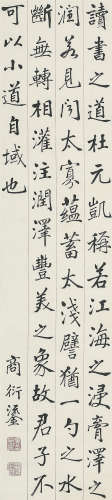 讀書之道杜元凱稱若江海之浸膏澤之
潤若見聞太寡蘊蓄太淺譬猶一勺之水
斷無轉相灌注潤澤豐美之象故君子不
可以小道自域也
商衍鎏